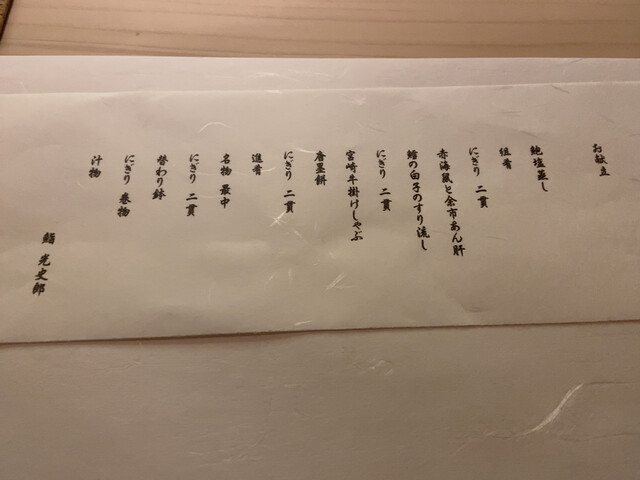 お献立
鮑塩蒸し
組肴
にぎり 二貫
赤海鼠と余市あん肝
鱈の白子のすり流し
にぎり 二貫
宮崎牛掛けしゃぶ
唐墨餅
にぎり 二貫
進肴
名物 最中
にぎり 二貫
替わり鉢
にぎり 巻物
汁物
鮨 光史郎